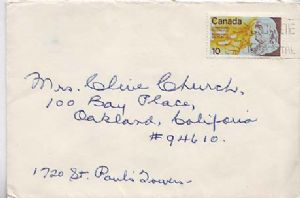 Canada
10
Mrs. Clive Church,
100 Bay Place,
Oakland, California
#94610.
1720 St. Paul's Towers